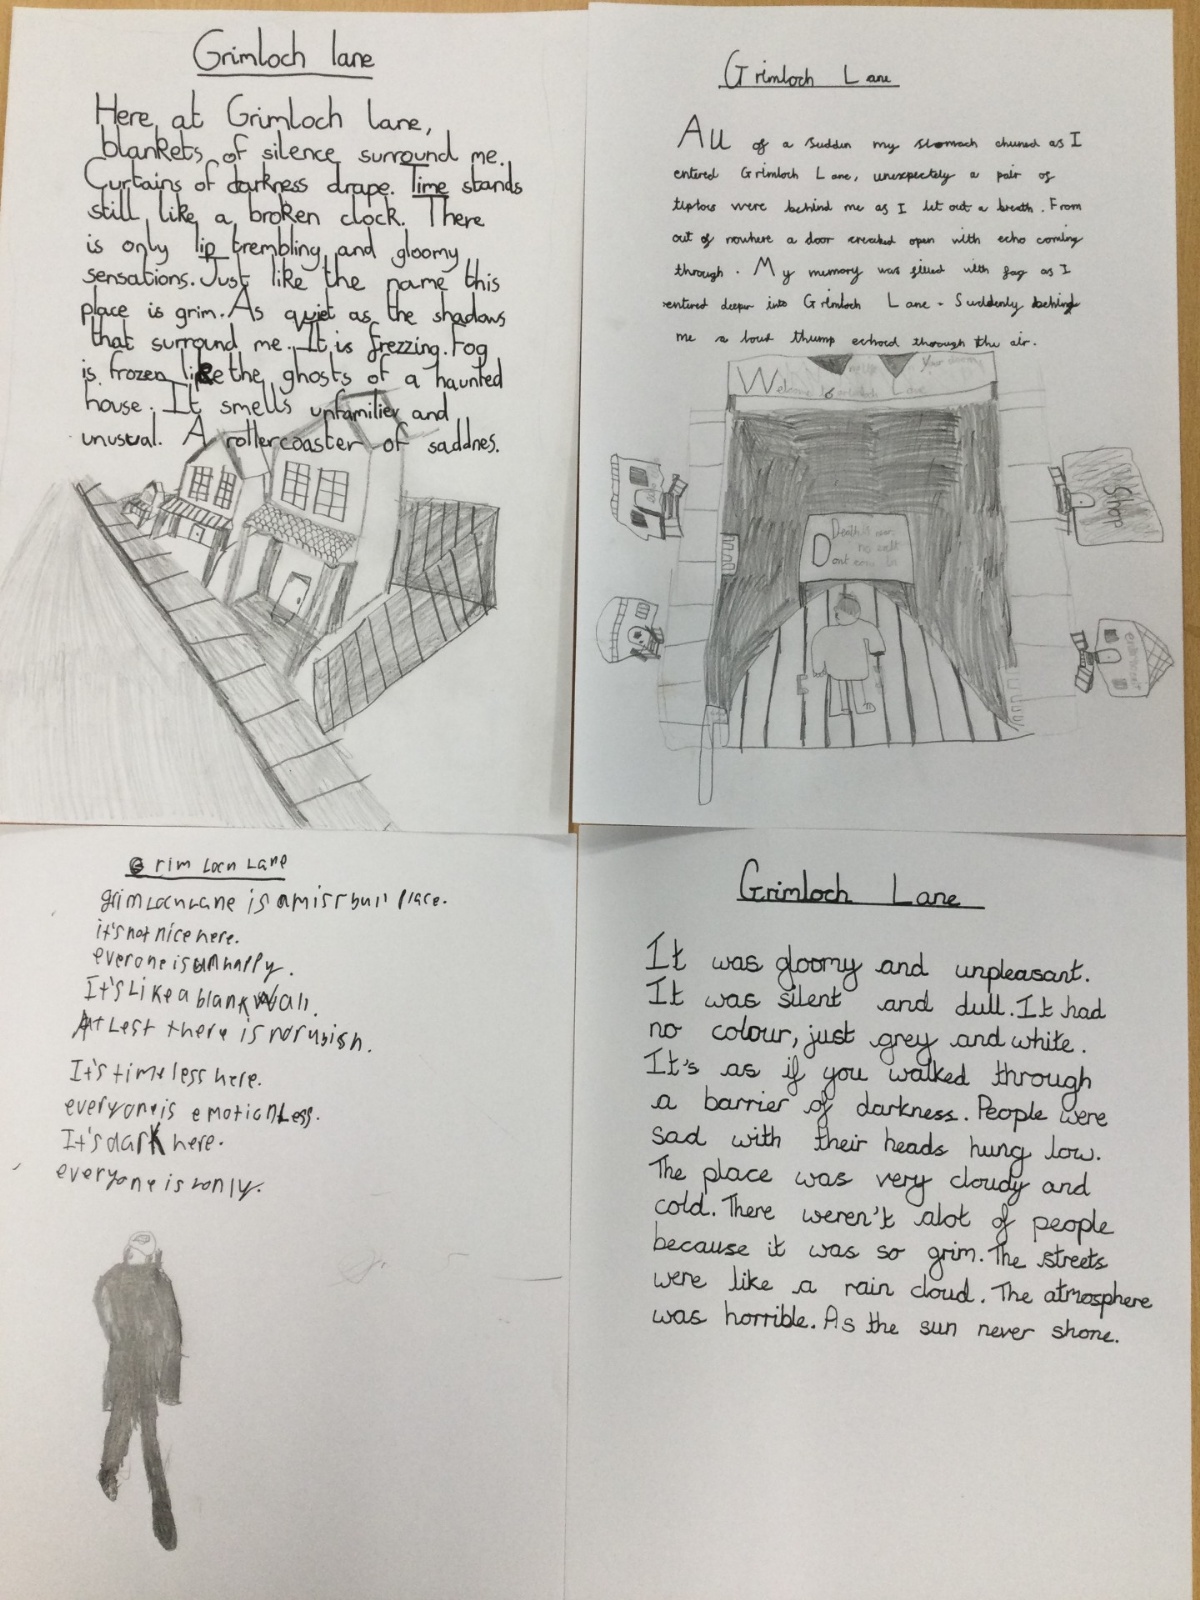 Grimloch lane
Here at Grimloch lane,
blankets of silence surround me.
Curtains of darkness drape. Time stands
still like a broken clock. There
is only lip trembling and gloomy
sensations. Just like the name this
place is grim. As quiet as the shadows
that surround me. It is frezzing. Fog
is frozen like the ghosts of a haunted
house. It smells unfamilier and
unusual. A rollercoaster of saddnes.
Grimloch Lane
All of a sudden my stomach chured as I
entered Grimloch Lane, unexpectely a pair of
tiptoes were behind me as I let out a breath. From
out of nowhere a door creaked open with echo coming
through. My memory was filled with fog as I
entired deeper into Grimloch Lane. Suddenly behind
me a loud thump echoed through the air.
Welcome to Lane
Your
Shop
Death is
no exit
Dont
Grim Loch Lane
grim Loch Lane is a missrbull place.
it's not nice here.
everone is unhappy.
It's Like a blank Wall.
At Lest there is no rubish.
It's timeless here.
everyone is emotionLess.
It's dark here.
everyone is lonly.
Grimloch Lane
It was gloomy and unpleasant.
It was silent and dull. It had
no colour, just grey and white.
It's as if you walked through
a barrier of darkness. People were
sad with their heads hung low.
The place was very cloudy and
cold. There weren't alot of people
because it was so grim. The streets
were like a rain cloud. The atmosphere
was horrible. As the sun never shone.